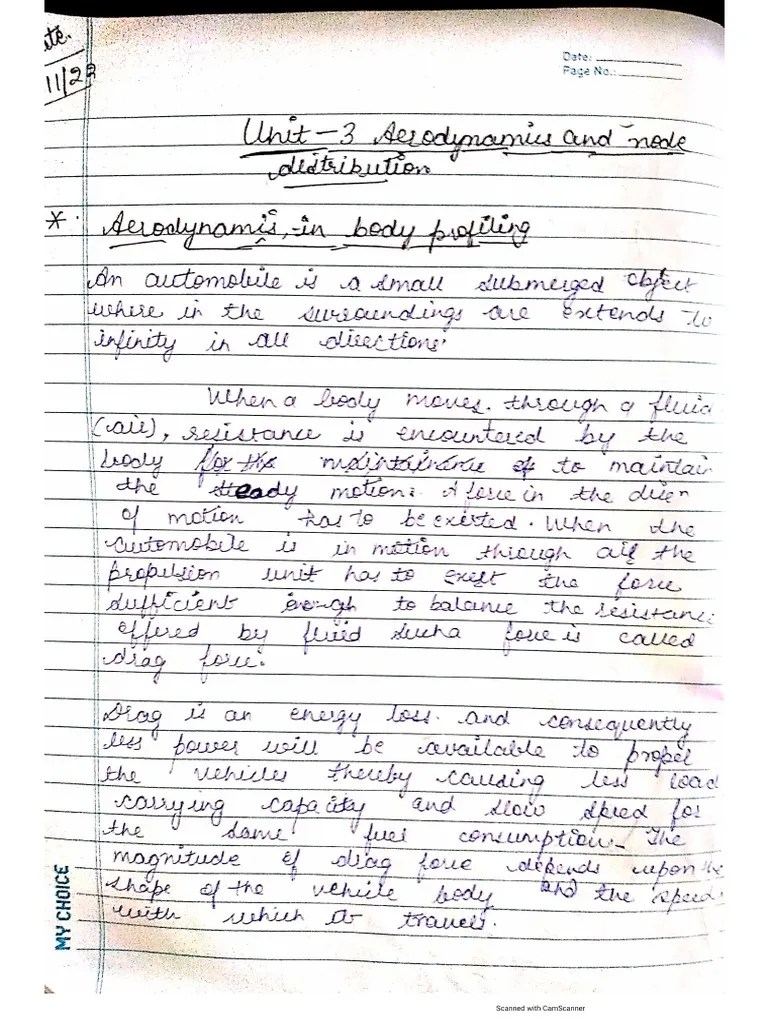 ate.
11/22
Date:
Page No.:
Unit-3 Aerodynamics and node
distribution
* Aerodynamis, in body profiling
An automobile is a small submerged object
where in the surroundings are extends to
infinity in all directions.
When a body moves. through a fluid
(air), resistance is encountered by the
body for the maintainance of to maintain
the steady motion. A force in the
of motion has to be exerted. When the
automobile is in motion through air the
propulsion unit has to exert the force
sufficient enough to balance the resistance
offered by fluid such a force is called
drag force.
Drag is an energy loss. and consequently
less power will be available to propel
the vehicles thereby causing less load
carrying capacity and slow speed for
the same fuel consumption. The
magnitude of drag force depends upon the
shape of the vehicle body and the speed
with which it travels.
MY CHOICE
Scanned with CamScanner